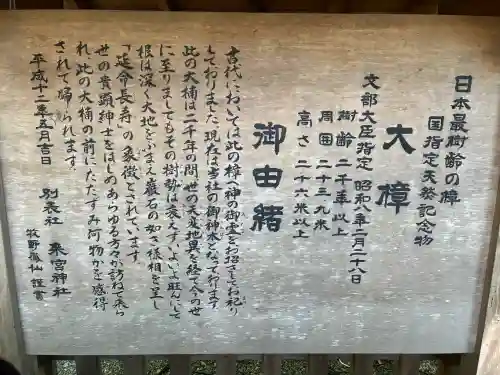 日本最樹齢の樟
国指定天然記念物
大樟
文部大臣指定 昭和八年二月二十八日
樹齢 二千年以上
周囲 二十三、九米
高さ 二十六米以上
御由緒
古代においては此の樟に神の御霊をお招きしてお祀り
しておりました。現在は当社の御神木となっております
此の大楠は二千年の間世の天変地異を経て今の世
に至りましてもその樹勢は衰えず、よいよ旺んにして
根は深く大地をふまえ巌石の如き様相を呈し
「延命長寿」の象徴とされています。
世の貴顕紳士をはじめあらゆる方々が訪ねて来ら
れ、此の大楠の前にたたずみ何物かを感得
されて帰られます。
平成十二年五月吉日
別表社 来宮神社
牧野 仙 謹書